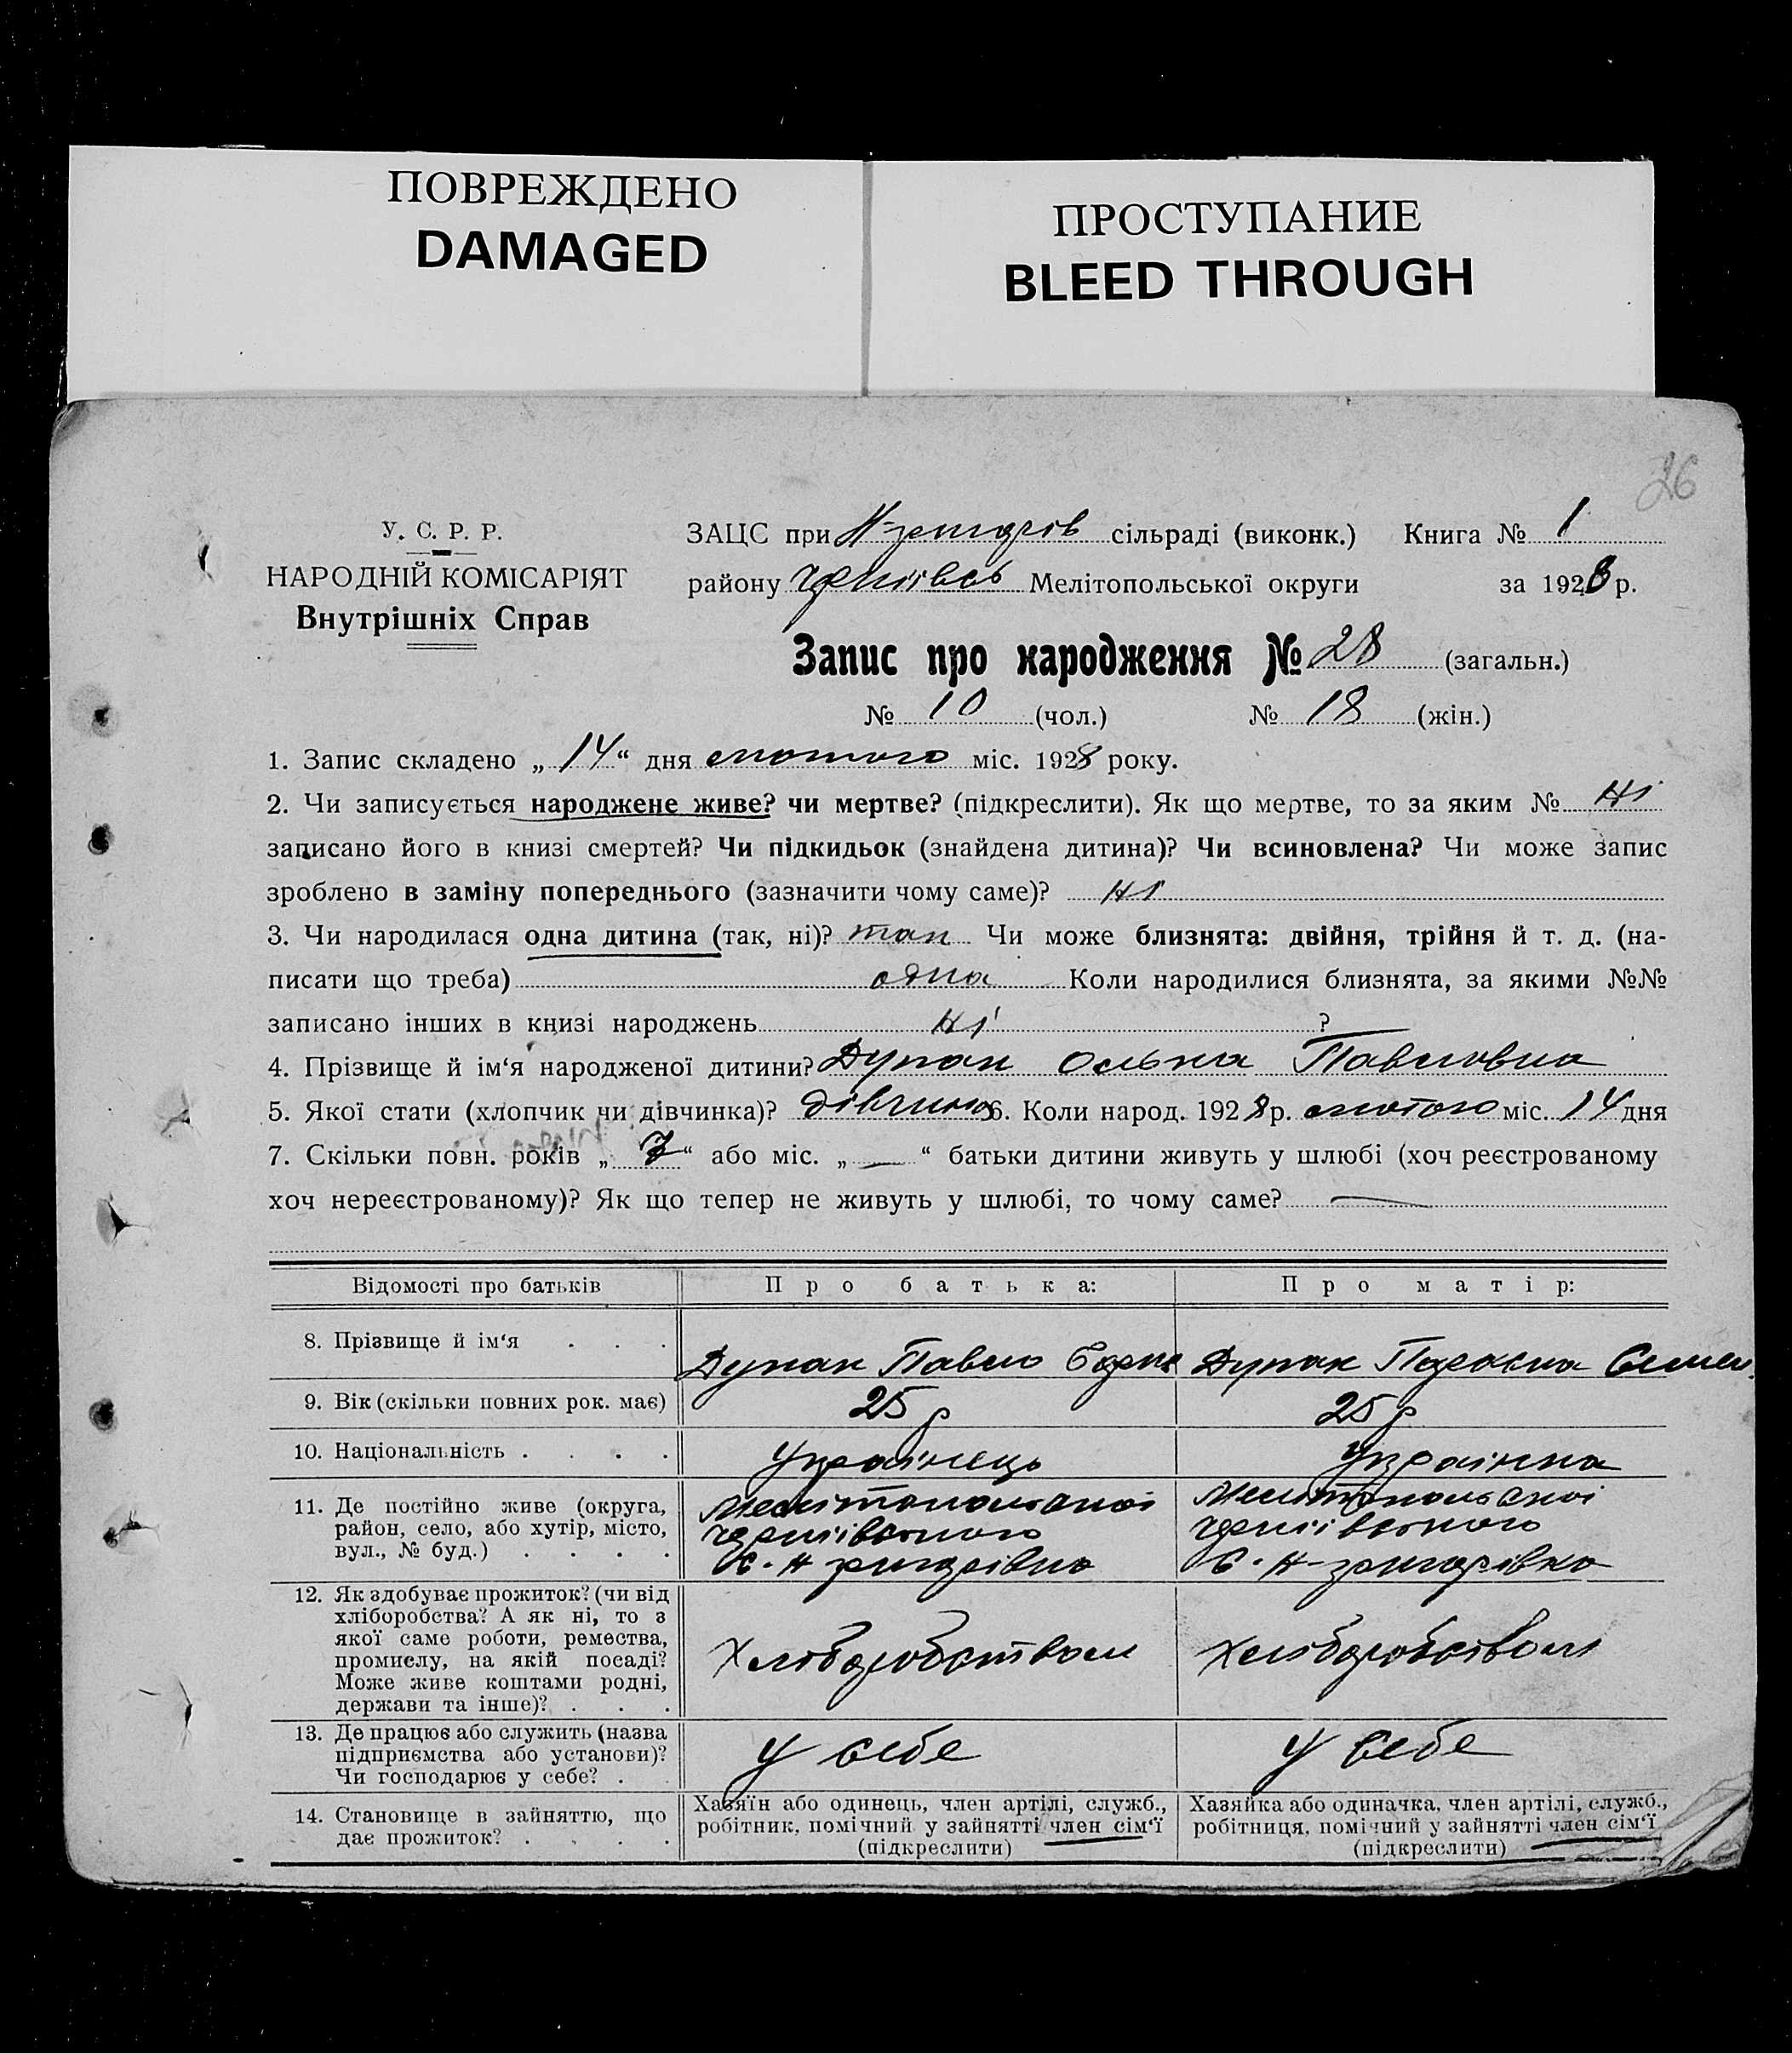 ПОВРЕЖДЕНО
DAMAGED
ПРОСТУПАНИЕ
BLEED THROUGH
26
У. С. Р. Р.
НАРОДНІЙ КОМІСАРІЯТ
Внутрішніх Справ
ЗАЦС при Н-григорів сільраді (виконк.) Книга № 1
району Чернігівськ Мелітопольської округи за 1928 р.
Запис про народження № 28 (загальн.)
№ 10 (чол.) № 18 (жін.)
1. Запис складено „ 14 “ дня лютого міс. 1928 року.
2. Чи записується народжене живе? чи мертве? (підкреслити). Як що мертве, то за яким № ні
записано його в книзі смертей? Чи підкидьок (знайдена дитина)? Чи всиновлена? Чи може запис
зроблено в заміну попереднього (зазначити чому саме)? ні
3. Чи народилася одна дитина (так, ні)? так Чи може близнята: двійня, трійня й т. д. (на-
писати що треба) одна Коли народилися близнята, за якими №№
записано інших в книзі народжень ні ?
4. Прізвище й ім‘я народженої дитини? Дупак Ольга Павловна
5. Якої стати (хлопчик чи дівчинка)? дівчинка 6. Коли народ. 1928 р. лютого міс. 14 дня
7. Скільки повн. років „ 7 “ або міс. „ — “ батьки дитини живуть у шлюбі (хоч реєстрованому
хоч нереєстрованому)? Як що тепер не живуть у шлюбі, то чому саме? —
Відомості про батьків
Про батька:
Про матір:
8. Прізвище й ім‘я . . .
Дупак Павло
Дупак Параска Семен.
9. Вік (скільки повних рок. має)
25 р
25 р
10. Національність . . . .
Українець
Українка
11. Де постійно живе (округа,
район, село, або хутір, місто,
вул., № буд.) . . . .
Мелітопольської
Чернігівського
С. Н григорівка
Мелітопольської
Чернігівського
С. Н-григорівка
12. Як здобуває прожиток? (чи від
хліборобства? А як ні, то з
якої саме роботи, ремества,
промислу, на якій посаді?
Може живе коштами родні,
держави та інше)? . . .
Хліборобством
Хліборобством
13. Де працює або служить (назва
підприємства або установи)?
Чи господарює у себе? . .
У себе
У себе
14. Становище в зайняттю, що
дає прожиток? . . . .
Хазяїн або одинець, член артілі, служб.,
робітник, помічний у зайнятті член сім‘ї
(підкреслити)
Хазяйка або одиначка, член артілі, служб.,
робітниця, помічний у зайнятті член сім‘ї
(підкреслити)